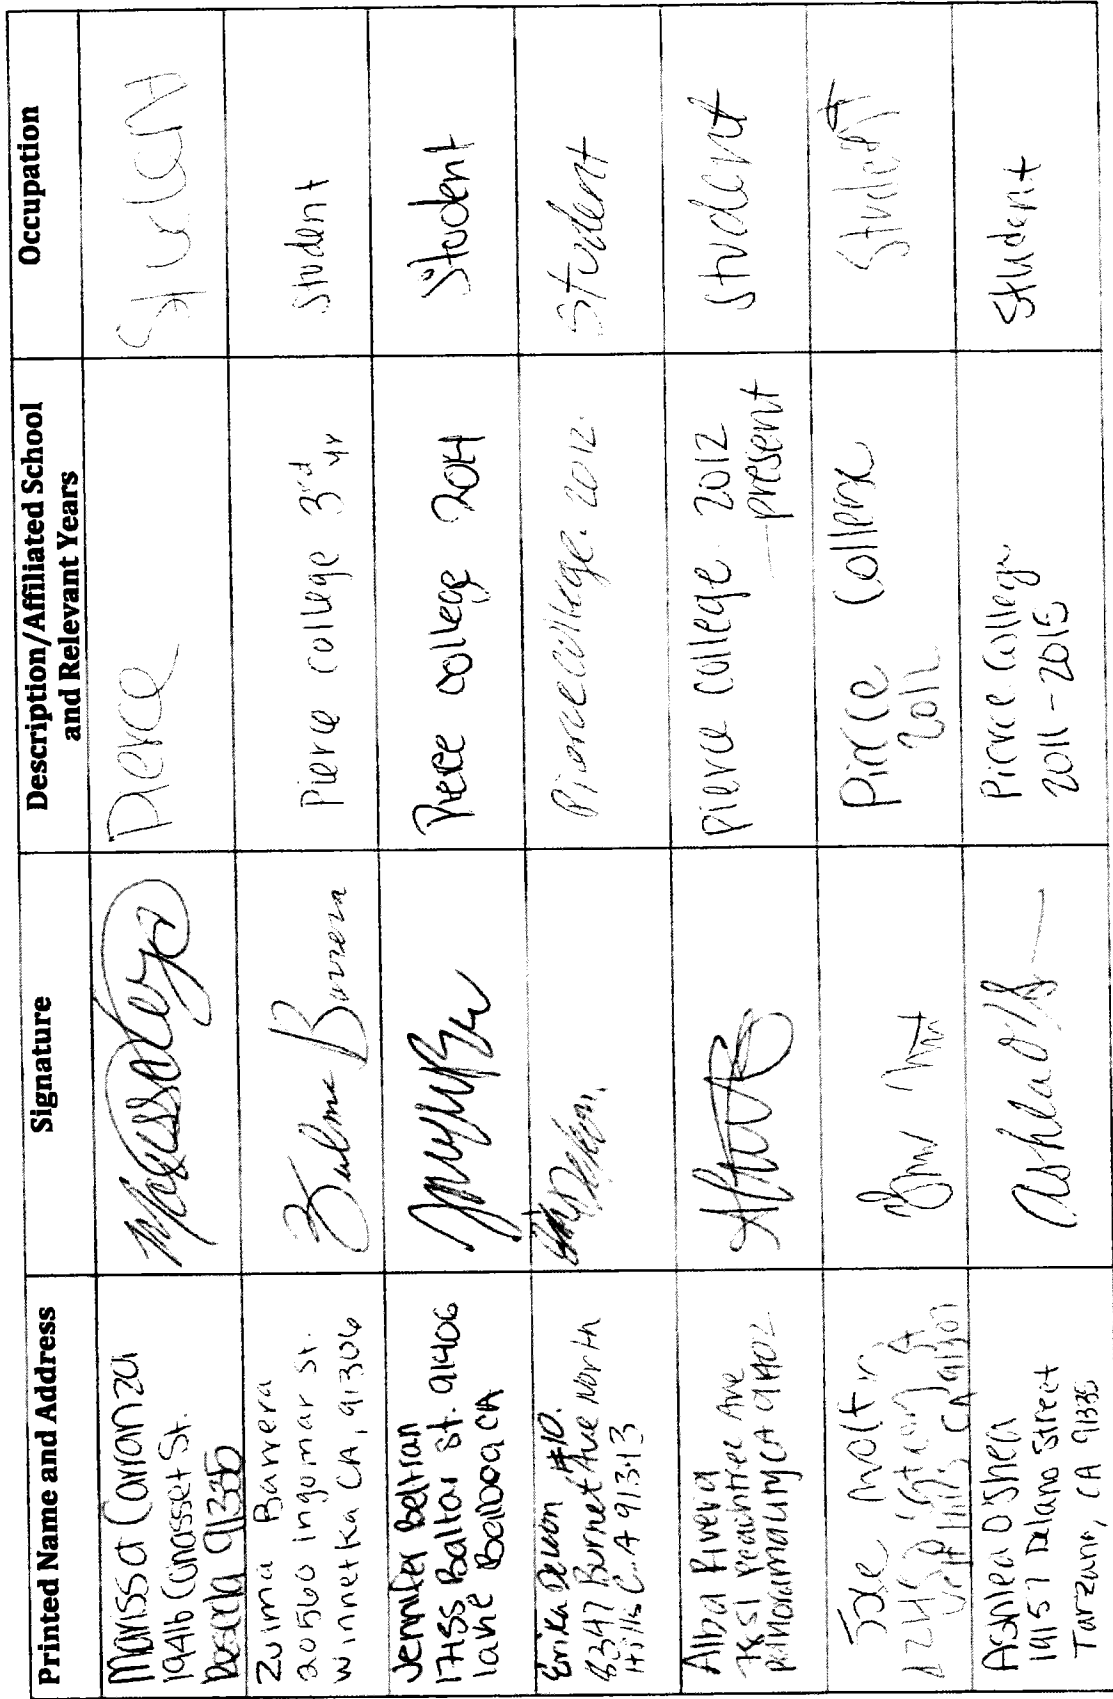 Printed Name and Address
Signature
Description/Affiliated School
and Relevant Years
Occupation
Marissa Carranza
19416 Cohasset St.
Reseda 91335
Pierce
Student
Zulma Barrera
20560 Ingomar St.
Winnetka CA, 91306
Zulma Barrera
Pierce college 3rd
yr
Student
Jennifer Beltran
17455 Baltar St. 91406
lake Balboa CA
Pierce college 2014
Student
Erika #10.
8347 Burnet Ave North
Hills C.A 91313
Pierce college. 2012.
Student
Alba Rivera
7851 Peachtree Ave
panorama city CA 91402
pierce college 2012
- present
Student
Joe
Hills CA 91307
Pierce College
2012
Student
Ashlea O'Shea
19157 Delano Street
Tarzana, CA 91335
Pierce College
2011-2015
Student